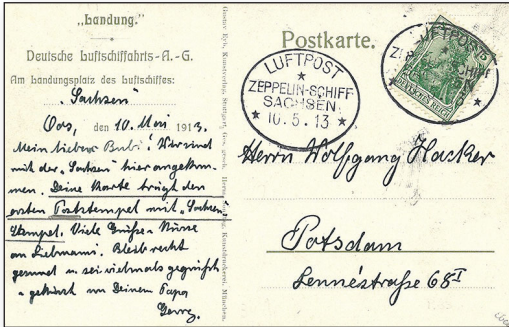 „Landung."
Deutsche Luftschiffahrts-A.-G.
Am Landungsplatz des Luftschiffes:
„Sachsen"
Oos, den 10. Mai 1913.
Mein lieber Bubi! Wir sind
mit der „Sachsen" hier angekom-
men. Deine Karte trägt den
ersten Poststempel mit „Sachsen"
Stempel. Viele Grüße + Küsse
an Liebmami. Bleib recht
gesund u. sei vielmals gegrüßt
+ geküsst von Deinem Papa
Georg.
Postkarte.
LUFTPOST
ZEPPELIN-SCHIFF
SACHSEN
* 10.5.13 *
LUFTPOST
DEUTSCHES REICH
Herrn Wolfgang Hacker
Potsdam
Lennéstraße 68I